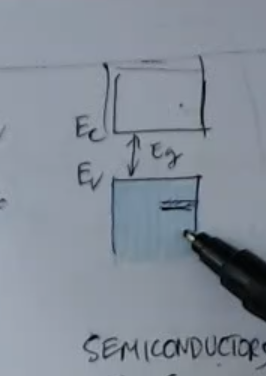 Ec
Eg
Ev
SEMICONDUCTORS